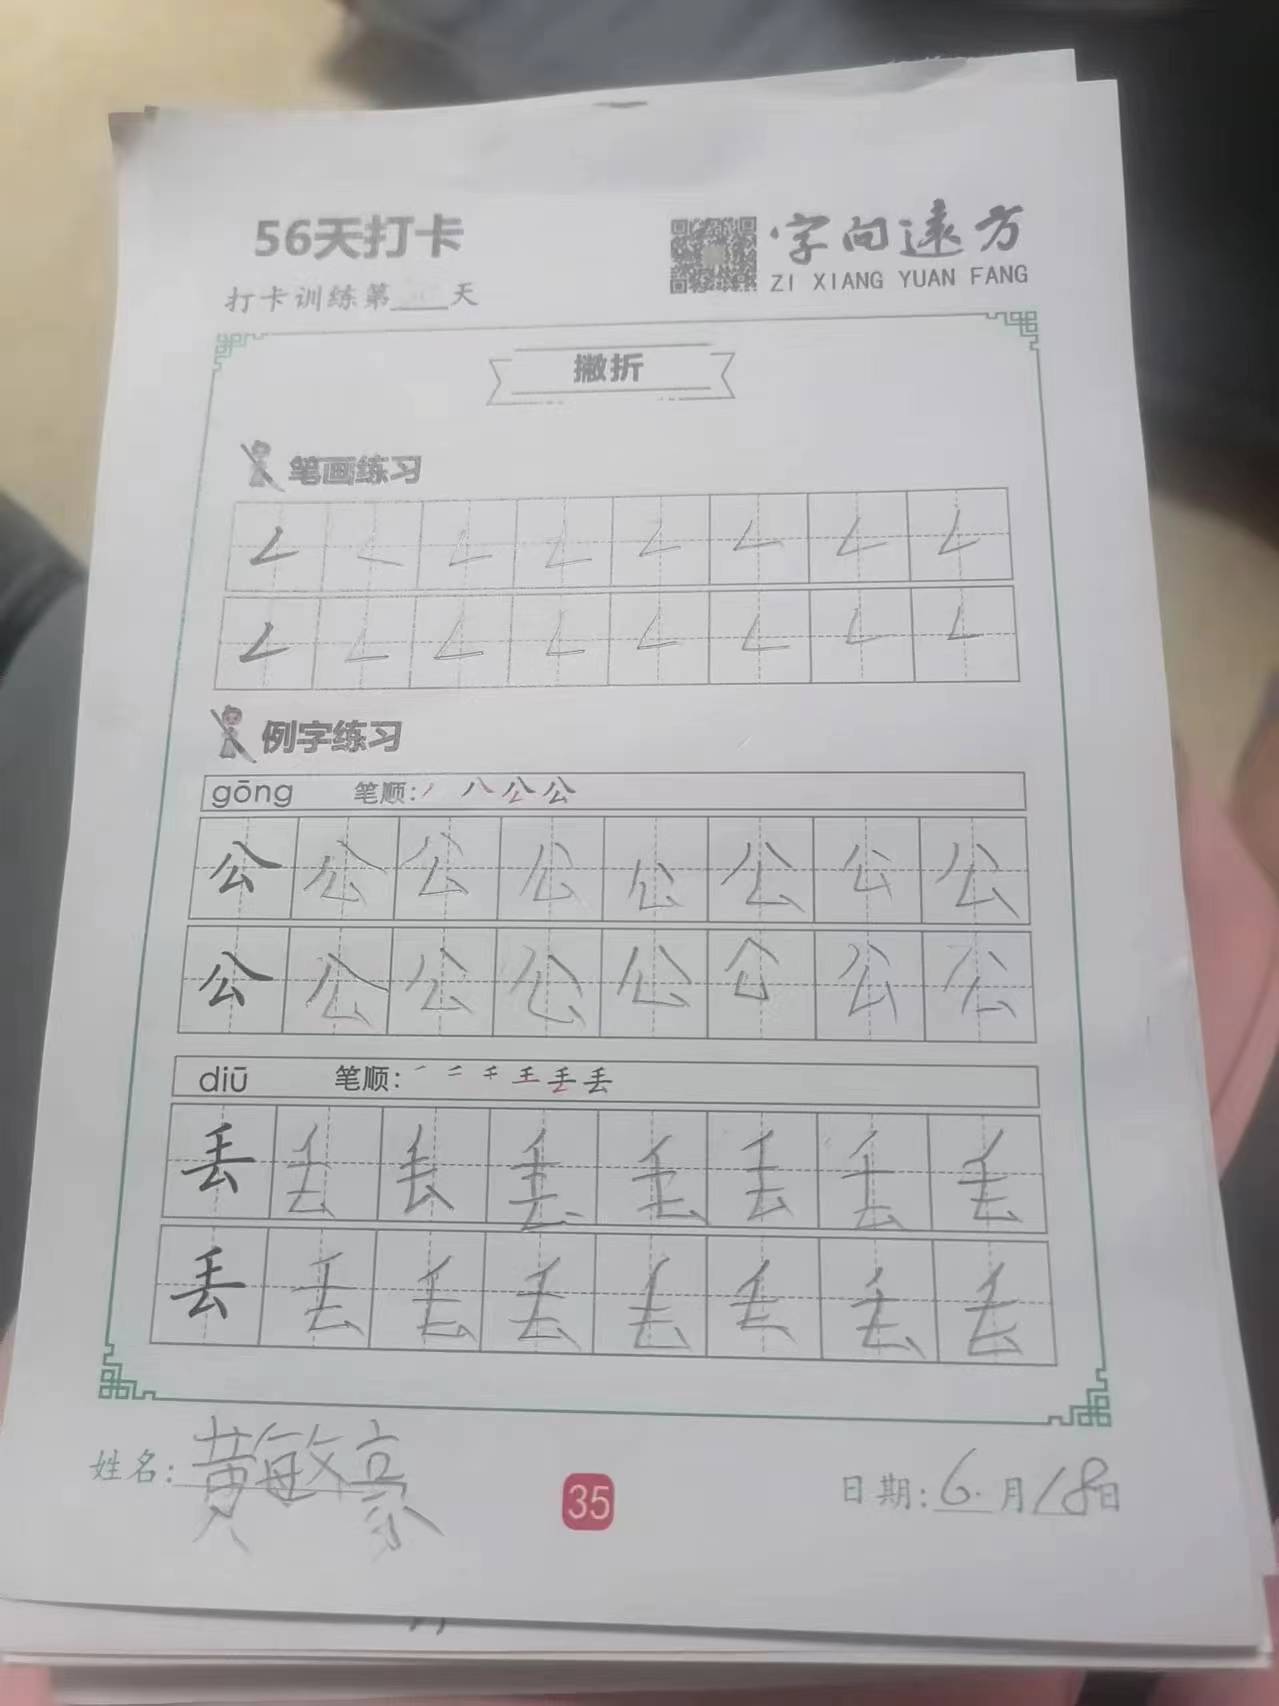 56天打卡
字向远方
ZI XIANG YUAN FANG
打卡训练第____天
撇折
笔画练习
𠃋 𠃋 𠃋 𠃋 𠃋 𠃋 𠃋 𠃋
𠃋 𠃋 𠃋 𠃋 𠃋 𠃋 𠃋 𠃋
例字练习
gōng 笔顺: 丿 八 公 公
公 公 公 公 公 公 公 公
公 公 公 公 公 公 公 公
diū 笔顺:
丢 丢 丢 丢 丢 丢 丢 丢
丢 丢 丢 丢 丢 丢 丢 丢
姓名: 黄敏京
35
日期: 6月18日